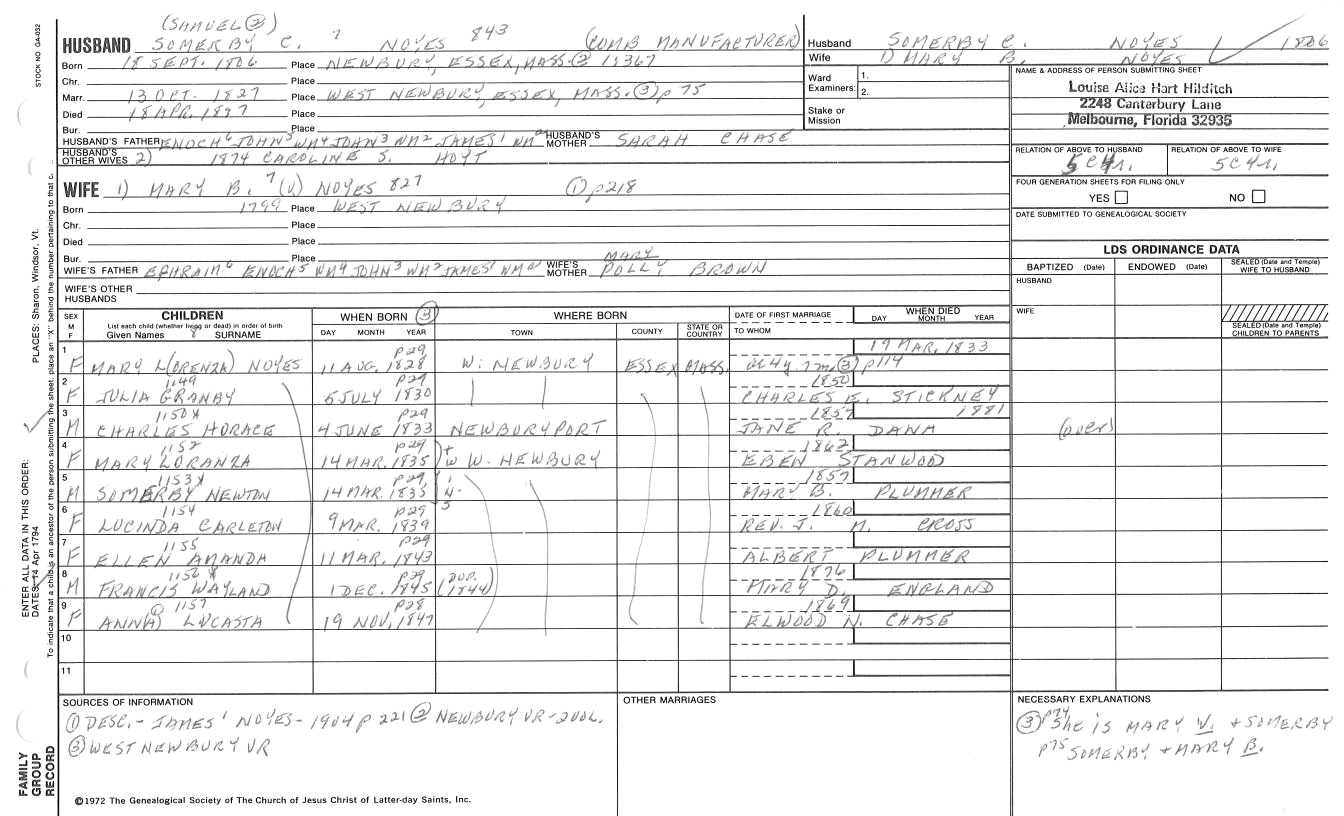 (SAMUEL ②)
HUSBAND SOMERBY C. 7 NOYES 843 (COMB MANUFACTURER)
Born 18 SEPT. 1806 Place NEWBURY, ESSEX, MASS. ②
Chr. Place
Marr. 13 OCT. 1827 Place WEST NEWBURY, ESSEX, MASS. ③ p 75
Died 18 APR. 1897 Place
Bur. Place
HUSBAND'S FATHER ENOCH⁶ JOHN⁵ WM⁴ JOHN³ WM² JAMES¹ WMᵃ HUSBAND'S MOTHER SARAH CHASE
HUSBAND'S OTHER WIVES 2) 1874 CAROLINE S. HOYT
WIFE 1) MARY B. 7 (V) NOYES 827 ① p218
Born 1799 Place WEST NEWBURY
Chr. Place
Died Place
Bur. Place
WIFE'S FATHER EPHRAIM⁶ ENOCH⁵ WM⁴ JOHN³ WM² JAMES¹ WMᵃ WIFE'S MOTHER MARY POLLY BROWN
WIFE'S OTHER HUSBANDS
Husband SOMERBY C. NOYES 1806
Wife 1) MARY B. NOYES
Ward Examiners: 1.
2.
Stake or Mission
NAME & ADDRESS OF PERSON SUBMITTING SHEET
Louise Alice Hart Hilditch
2248 Canterbury Lane
Melbourne, Florida 32935
RELATION OF ABOVE TO HUSBAND RELATION OF ABOVE TO WIFE
5C4r. 5C4r.
FOUR GENERATION SHEETS FOR FILING ONLY
YES NO
DATE SUBMITTED TO GENEALOGICAL SOCIETY
LDS ORDINANCE DATA
BAPTIZED (Date) ENDOWED (Date) SEALED (Date and Temple) WIFE TO HUSBAND
HUSBAND
WIFE
SEALED (Date and Temple) CHILDREN TO PARENTS
SEX M F CHILDREN WHEN BORN ③ WHERE BORN DATE OF FIRST MARRIAGE WHEN DIED
List each child (whether living or dead) in order of birth
Given Names 8 SURNAME DAY MONTH YEAR TOWN COUNTY STATE OR COUNTRY TO WHOM DAY MONTH YEAR
p29 19 MAR. 1833
1 F MARY L(ORENZA) NOYES 11 AUG. 1828 W. NEWBURY ESSEX MASS. ae 4y 7m ③ p114
1149 p29 1850
2 F JULIA GRANBY 5 JULY 1830 CHARLES E. STICKNEY
1150 X p29 1857 1881
3 M CHARLES HORACE 4 JUNE 1833 NEWBURYPORT JANE R. DANA (over)
1152 p29 1862
4 F MARY LORANZA 14 MAR. 1835 W. NEWBURY EBEN STANWOOD
1153 X p29 1857
5 M SOMERBY NEWTON 14 MAR. 1835 MARY B. PLUMMER
1154 p29 1860
6 F LUCINDA CARLETON 9 MAR. 1839 REV. J. M. CROSS
1155 p29
7 F ELLEN AMANDA 11 MAR. 1843 ALBERT PLUMMER
1156 X p29 1876
8 M FRANCIS WAYLAND 1 DEC. 1845 (DUP. 1844) MARY D. ENGLAND
① 1157 p28 1869
9 F ANN(A) LUCASTA 19 NOV. 1847 ELWOOD N. CHASE
10
11
SOURCES OF INFORMATION
① DESC.- JAMES¹ NOYES- 1904 p 221 ② NEWBURY VR-
③ WEST NEWBURY VR
OTHER MARRIAGES
NECESSARY EXPLANATIONS
③ p74 SHE IS MARY V. + SOMERBY
p75 SOMERBY + MARY B.
©1972 The Genealogical Society of The Church of Jesus Christ of Latter-day Saints, Inc.
STOCK NO. GA-032
PLACES: Sharon, Windsor, Vt.
ENTER ALL DATA IN THIS ORDER:
DATES: 14 Apr 1794
To indicate that a child is an ancestor of the person submitting the sheet, place an "X" behind the number pertaining to that c.
FAMILY GROUP RECORD